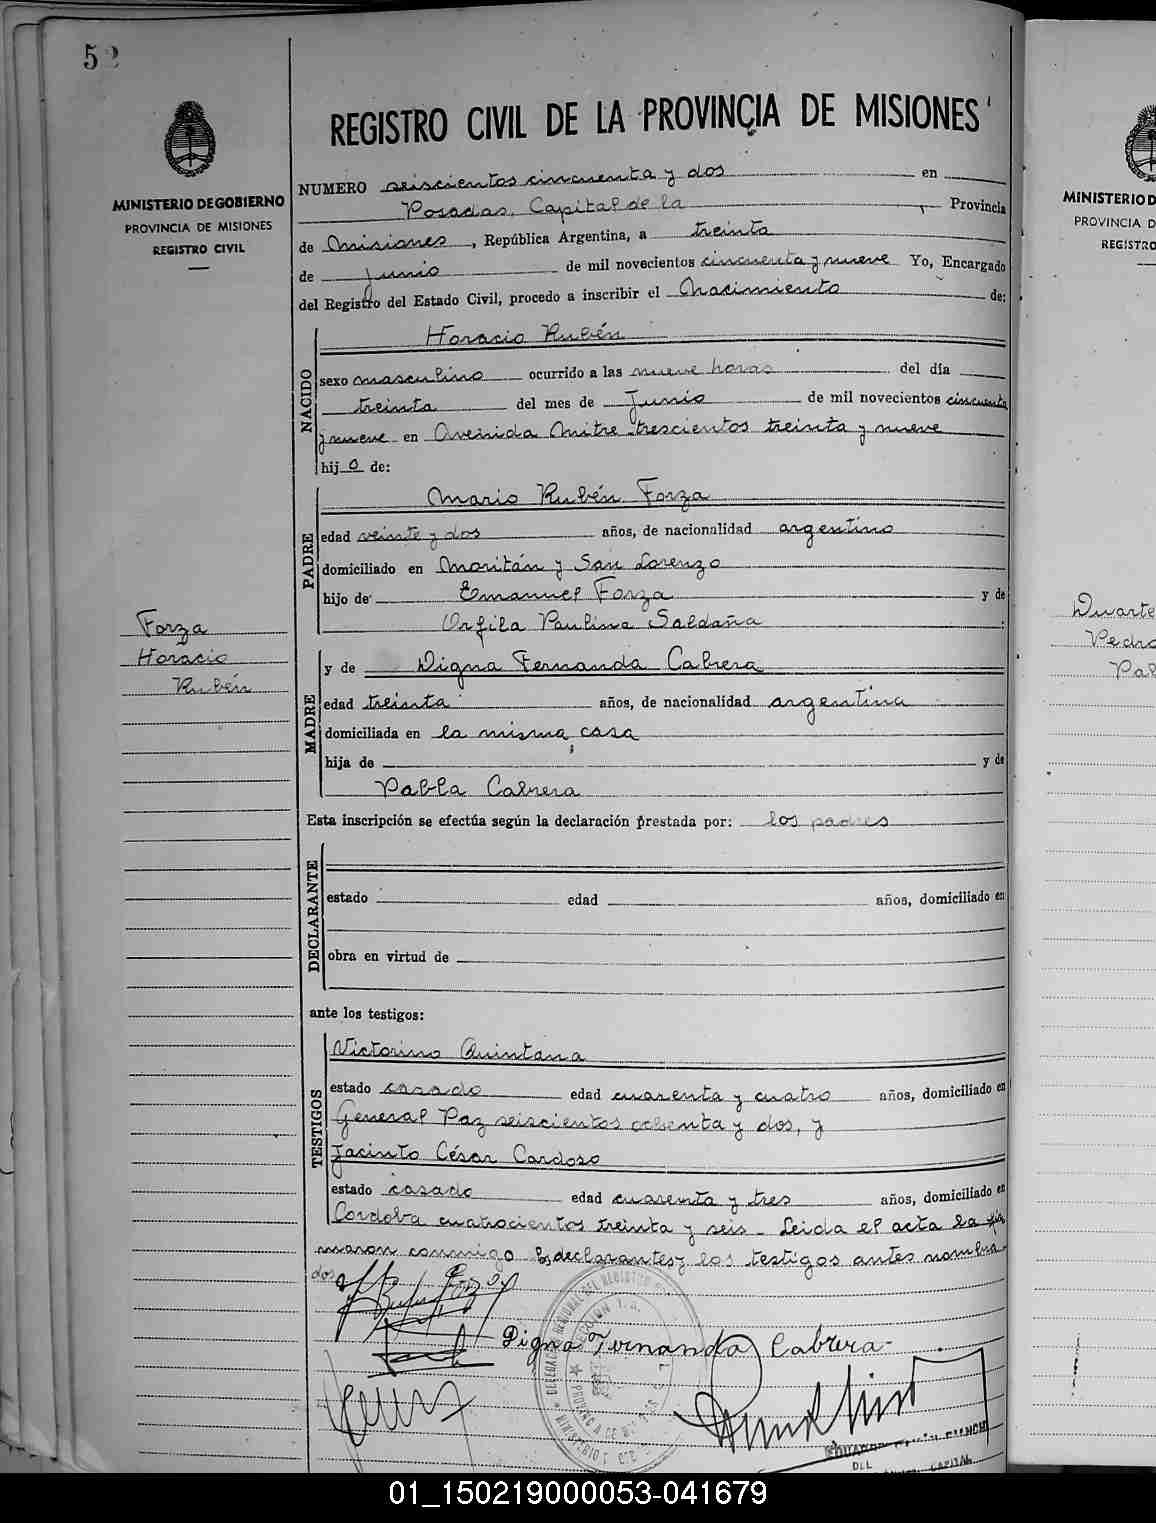 52
MINISTERIO DE GOBIERNO
PROVINCIA DE MISIONES
REGISTRO CIVIL
REGISTRO CIVIL DE LA PROVINCIA DE MISIONES
NUMERO seiscientos cincuenta y dos en
Posadas, Capital de la Provincia
de Misiones, República Argentina, a treinta
de Junio de mil novecientos cincuenta y nueve Yo, Encargado
del Registro del Estado Civil, procedo a inscribir el Nacimiento de:
NACIDO
Horacio Rubén
sexo masculino ocurrido a las nueve horas del día
treinta del mes de Junio de mil novecientos cincuenta
y nueve en Avenida Mitre trescientos treinta y nueve
hijo de:
PADRE
Mario Rubén Forza
edad veinte y dos años, de nacionalidad argentino
domiciliado en Moritán y San Lorenzo
hijo de Emanuel Forza y de
Orfila Paulina Saldaña
Forza
Horacio
Rubén
MADRE
y de Digna Fernanda Cabrera
edad treinta años, de nacionalidad argentina
domiciliada en la misma casa
hija de y de
Pabla Cabrera
Esta inscripción se efectúa según la declaración prestada por: los padres
DECLARANTE
estado edad años, domiciliado en
obra en virtud de
ante los testigos:
TESTIGOS
Victorino Quintana
estado casado edad cuarenta y cuatro años, domiciliado en
General Paz seiscientos ochenta y dos, y
Jacinto César Cardozo
estado casado edad cuarenta y tres años, domiciliado en
Cordoba cuatrocientos treinta y seis - Leida el acta la fir
maron conmigo los declarantes y los testigos antes nombra-
dos
Digna Fernanda Cabrera
MINISTERIO D
PROVINCIA D
REGISTRO
Duarte
Pedro
Pab
01_150219000053-041679